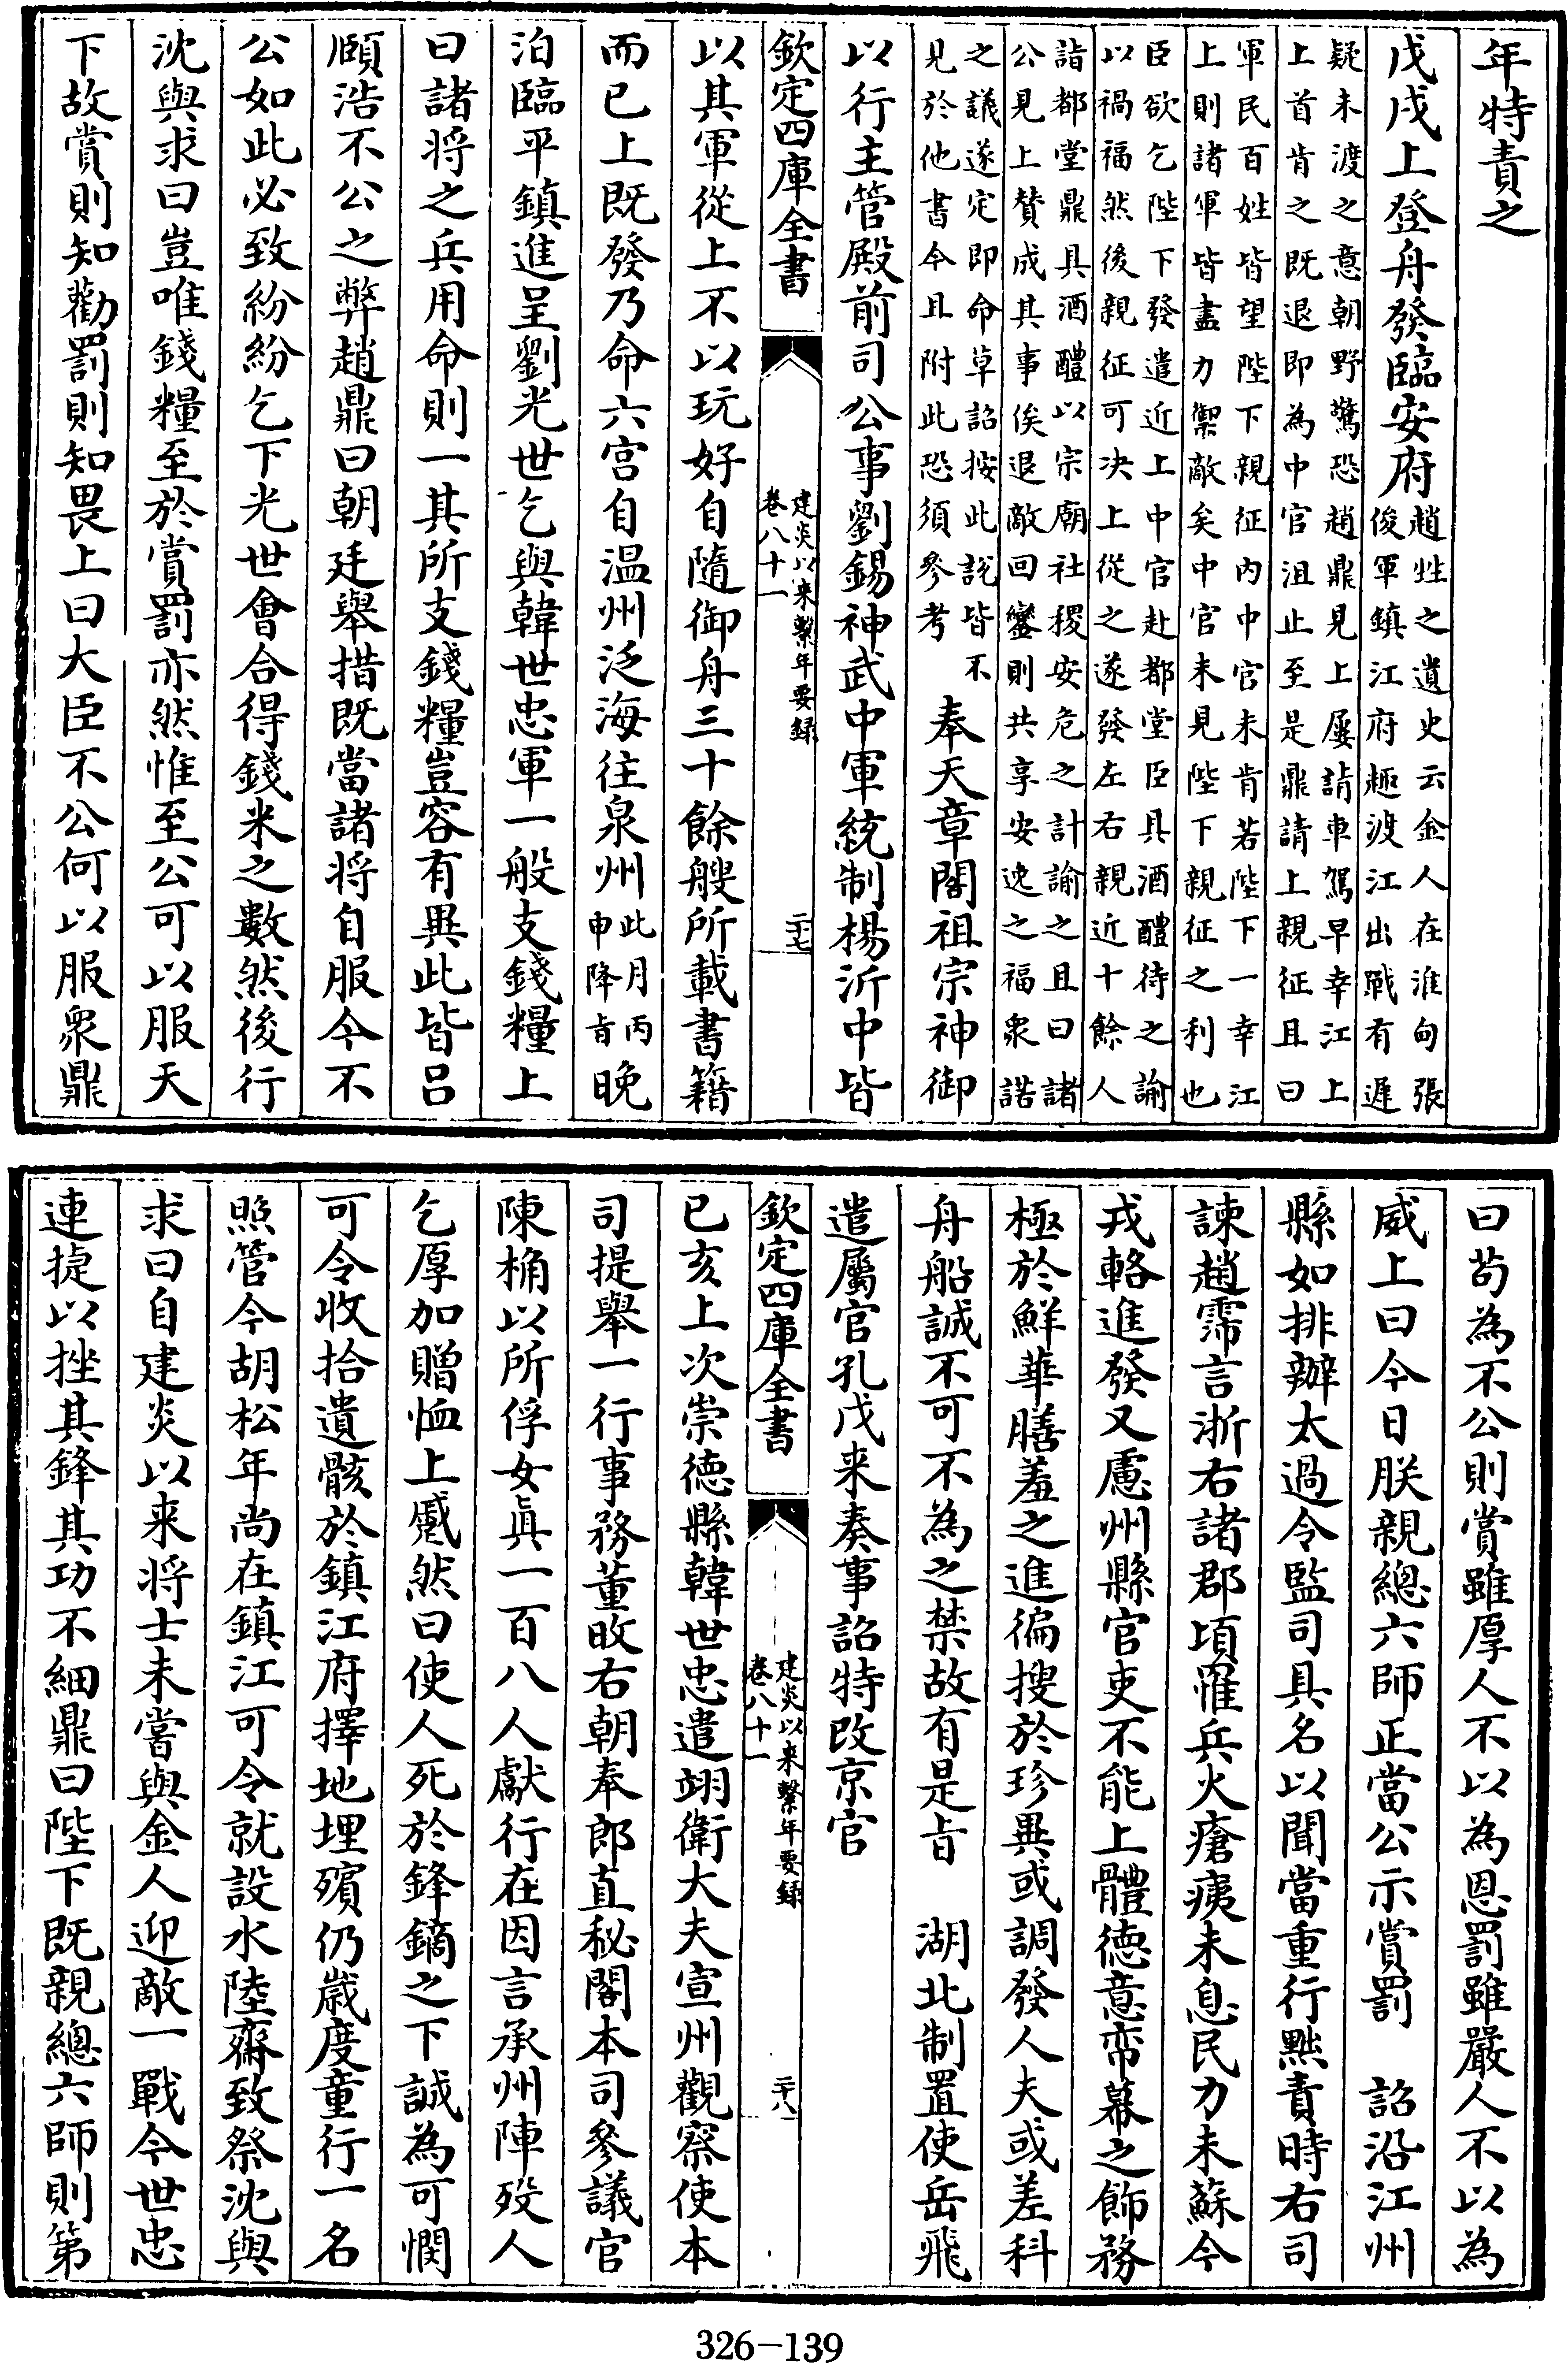 年特責之
戊戌上登舟發臨安府
趙甡之遺史云金人在淮甸張
俊軍鎮江府趣渡江出戰有遲
疑未渡之意朝野驚恐趙鼎見上屢請車駕早幸江上
上首肯之既退即為中官沮止至是鼎請上親征且曰
軍民百姓皆望陛下親征内中官未肯若陛下一幸江
上則諸軍皆盡力禦敵矣中官未見陛下親征之利也
臣欲乞陛下發遣近上中官赴都堂臣具酒醴待之諭
以禍福然後親征可决上從之遂發左右親近十餘人
詣都堂鼎具酒醴以宗廟社稷安危之計諭之且曰諸
公見上賛成其事俟退敵回鑾則共享安逸之福衆諾
之議遂定即命草詔按此説皆不
見於他書今且附此恐須參考
奉天章閣祖宗神御
以行主管殿前司公事劉錫神武中軍統制楊沂中皆
欽定四庫全書
建炎以来繫年要録
卷八十一
二十七
以其軍從上不以玩好自隨御舟三十餘艘所載書籍
而已上既發乃命六宫自温州泛海往泉州
此月丙
申降㫖
晚
泊臨平鎮進呈劉光世乞與韓世忠軍一般支錢糧上
曰諸將之兵用命則一其所支錢糧豈容有異此皆吕
頤浩不公之弊趙鼎曰朝廷舉措既當諸將自服今不
公如此必致紛紛乞下光世會合得錢米之數然後行
沈與求曰豈唯錢糧至於賞罰亦然惟至公可以服天
下故賞則知勸罰則知畏上曰大臣不公何以服衆鼎
曰茍為不公則賞雖厚人不以為恩罰雖嚴人不以為
威上曰今日朕親總六師正當公示賞罰　詔沿江州
縣如排辦太過令監司具名以聞當重行黜責時右司
諫趙霈言浙右諸郡頃罹兵火瘡痍未息民力未蘇今
戎輅進發又慮州縣官吏不能上體徳意帟幕之飾務
極於鮮華膳羞之進徧搜於珍異或調發人夫或差科
舟船誠不可不為之禁故有是㫖　湖北制置使岳飛
遣屬官孔戊来奏事詔特改京官
欽定四庫全書
建炎以来繫年要録
卷八十一
二十八
已亥上次崇徳縣韓世忠遣翊衛大夫宣州觀察使本
司提舉一行事務董旼右朝奉郎直秘閣本司參議官
陳桷以所俘女真一百八人獻行在因言承州陣殁人
乞厚加贈恤上蹙然曰使人死於鋒鏑之下誠為可憫
可令收拾遺骸於鎮江府擇地埋殯仍歳度童行一名
照管今胡松年尚在鎮江可令就設水陸齋致祭沈與
求曰自建炎以来将士未嘗與金人迎敵一戰今世忠
連捷以挫其鋒其功不細鼎曰陛下既親總六師則第
326-139